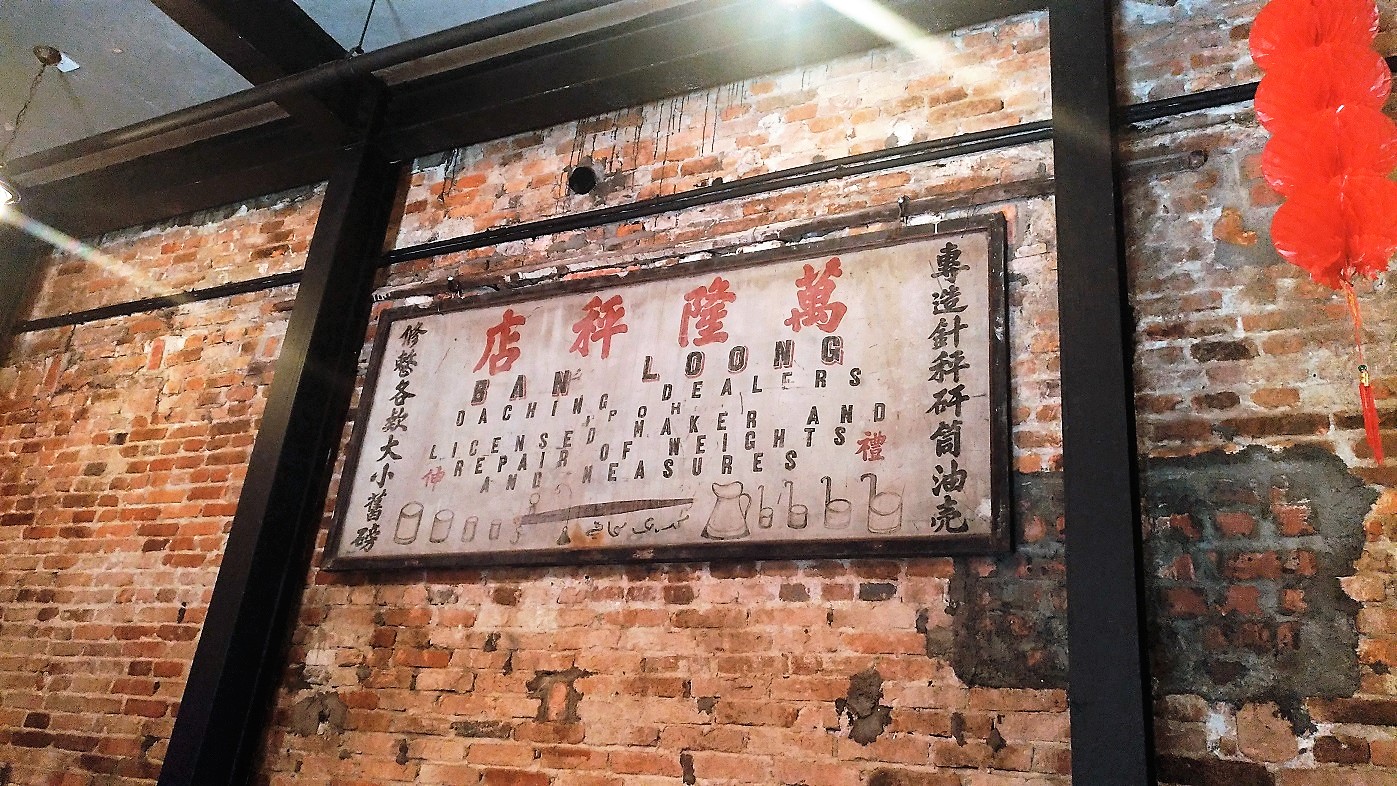 萬隆秤店
BAN LOONG
DACHING DEALERS
LICENSED MAKER AND
REPAIR OF WEIGHTS
AND MEASURES
禮
專造針秤砰筒油壳
修整各款大小舊磅